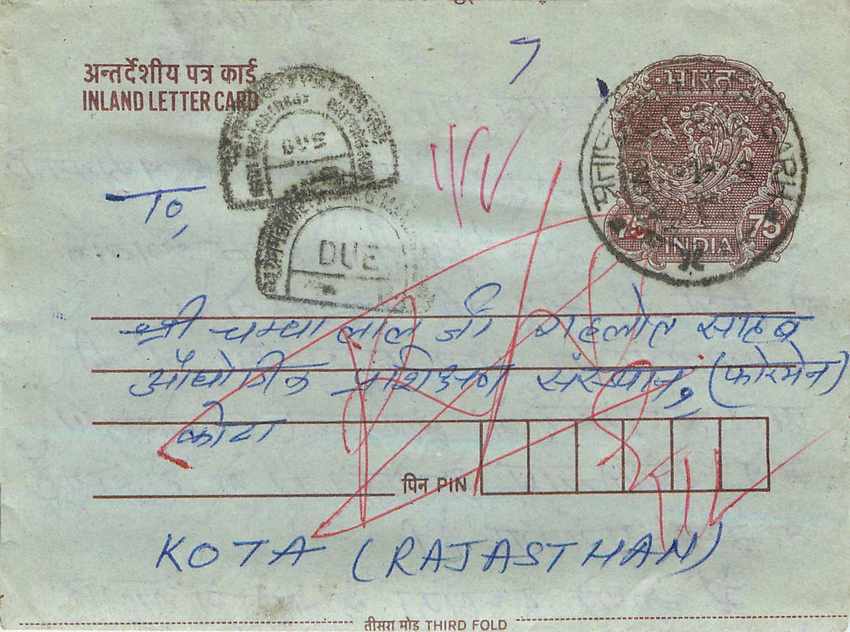 अन्तर्देशीय पत्र कार्ड
INLAND LETTER CARD
7
भारत
75 75
INDIA
DUE
DUE
To,
श्री चम्पा लाल जी गहलोत साहब
औद्योगिक प्रशिक्षण संस्थान, (फोरमेन)
कोटा
पिन PIN
KOTA (RAJASTHAN)
तीसरा मोड़ THIRD FOLD